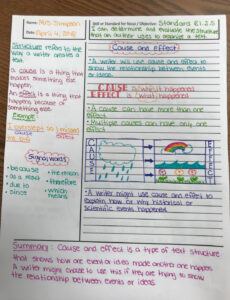 Name: Mrs. Simpson
Date: April 4, 2018
Skill or Standard for Focus / Objective: Standard E1.2.5
I can determine and evaluate the structure
that an author uses to organize a text.
Structure refers to the
way a writer creates a
text.
A cause is a thing that
makes something else
happen.
An effect is a thing that
happens because of
something else.
Example
Signal words
because
as a result
due to
since
the reason
therefore
which
means
Cause and effect
A writer will use cause and effect to
show the relationship between events
or ideas.
CAUSE Why it happened
EFFECT is what happened
A cause can have more than one
effect
Multiple causes can have only one
effect.
CAUSE
EFFECT
A writer might use cause and effect to
explain how or why historical or
scientific events happened.
Summary: Cause and effect is a type of text structure
that shows how one event or idea made another one happen.
A writer might choose to use this if they are trying to show
the relationship between events or ideas.